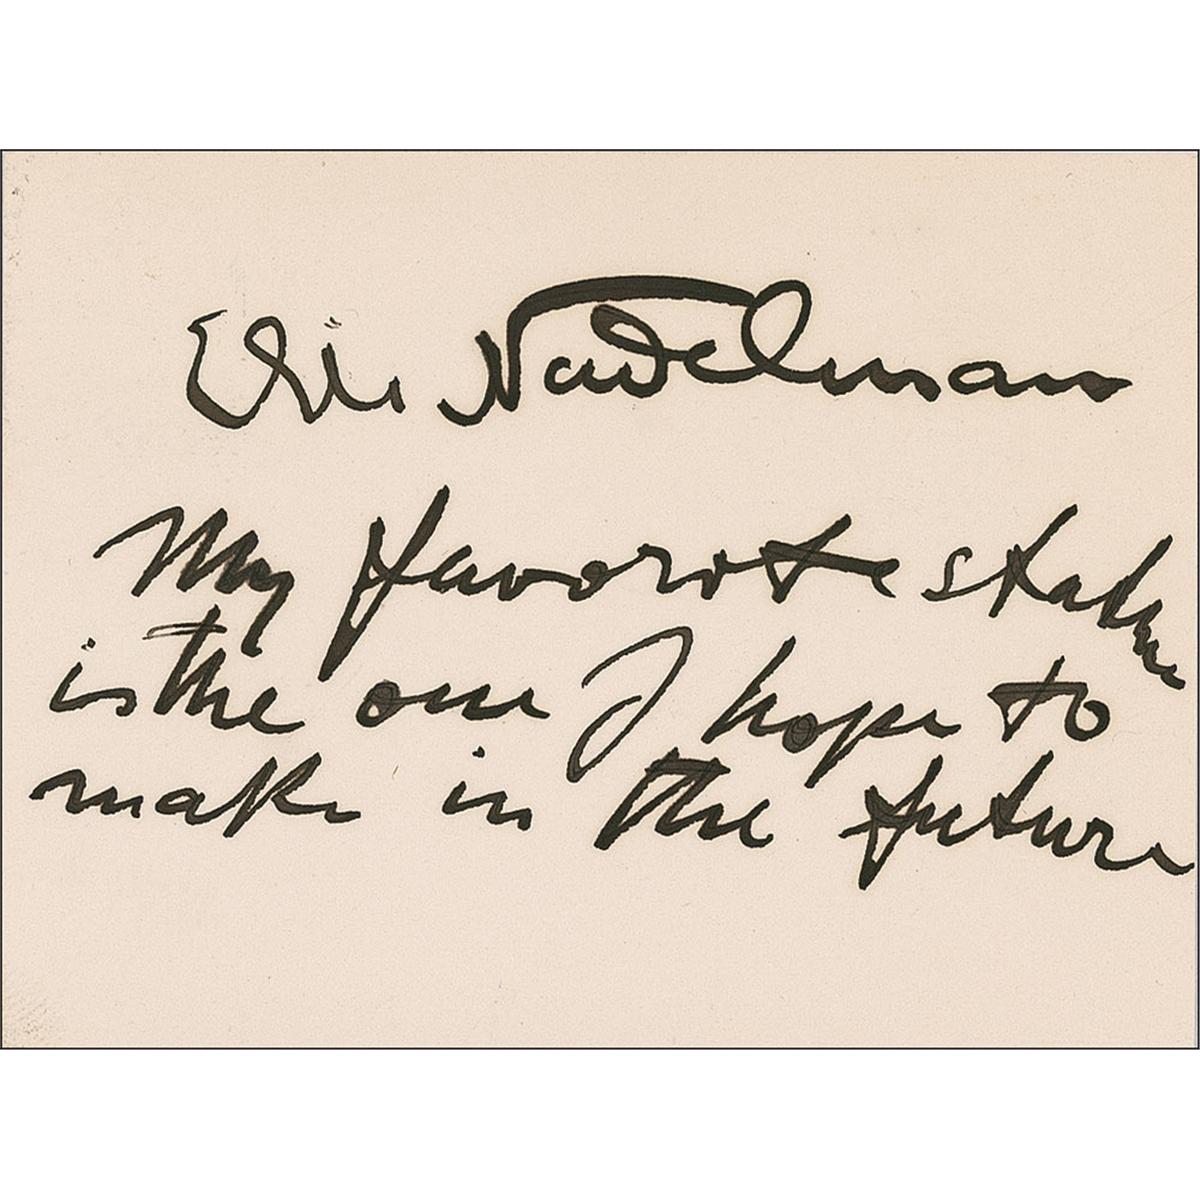 Elie Nadelman
My favorite statue
is the one I hope to
make in the future